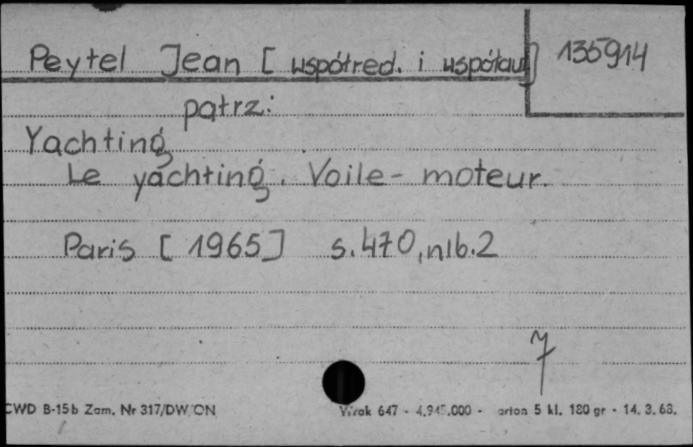 Peytel Jean [ współred. i współaut] 135914
patrz:
Yachting
Le yachting. Voile- moteur.
Paris [1965] s.470, nlb.2
7
CWD B-15b Zam. Nr 317/DW/ON 647 - 4.945.000 - 5 kl. 180 gr - 14. 3. 68.